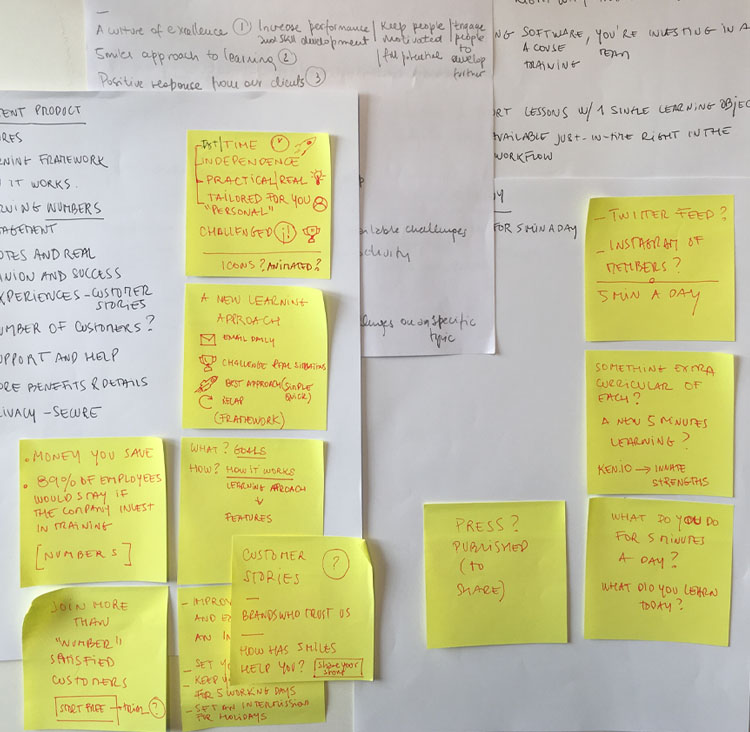 A culture of excellence ① Increase performance and skill development / Keep people motivated / full potential / Engage people to develop further
5miles approach to learning ②
Positive response from our clients ③
NG SOFTWARE, YOU'RE INVESTING IN A
A COUSE TEAM
TRAINING
RT LESSONS W/ 1 SINGLE LEARNING OBJEC
AVAILABLE JUST-IN-TIME RIGHT IN THE
WORKFLOW
Y
FOR 5 MIN A DAY
ilable challenges
ctivity
llenges on a specific
topic
ENT PRODUCT
URES
RNING FRAMEWORK
IT WORKS.
NUMBERS
GAGEMENT
OTES AND REAL
NION AND SUCCESS
XPERIENCES - CUSTOMER
STORIES
NUMBER OF CUSTOMERS?
UPPORT AND HELP
ORE BENEFITS & DETAILS
IVACY - SECURE
TIME
INDEPENDENCE
PRACTICAL/REAL
TAILORED FOR YOU
"PERSONAL"
CHALLENGED
ICONS? ANIMATED?
A NEW LEARNING
APPROACH
EMAIL DAILY
CHALLENGE REAL SITUATIONS
BEST APPROACH (SIMPLE
QUICK)
RECAP
(FRAMEWORK)
- TWITTER FEED?
- INSTAGRAM OF
MEMBERS?
5 MIN A DAY
SOMETHING EXTRA
CURRICULAR OF
EACH?
A NEW 5 MINUTES
LEARNING?
KEN.IO → INNATE
STRENGTHS
• MONEY YOU SAVE
• 89% OF EMPLOYEES
WOULD STAY IF
THE COMPANY INVEST
IN TRAINING
[NUMBERS]
WHAT? GOALS
HOW? HOW IT WORKS
LEARNING APPROACH
↓
FEATURES
CUSTOMER ?
STORIES
BRANDS WHO TRUST US
HOW HAS 5MILES
HELP YOU? Share your story
PRESS?
PUBLISHED
(TO
SHARE)
WHAT DO YOU DO
FOR 5 MINUTES
A DAY?
WHAT DID YOU LEARN
TODAY?
JOIN MORE
THAN
"NUMBER"
SATISFIED
CUSTOMERS
START FREE → trial ?
- IMPROV
AND E
AN IN
- SET YO
- KEEP Y
FOR 5 WORKING DAYS
- SET AN INTERMISSION
FOR HOLIDAYS